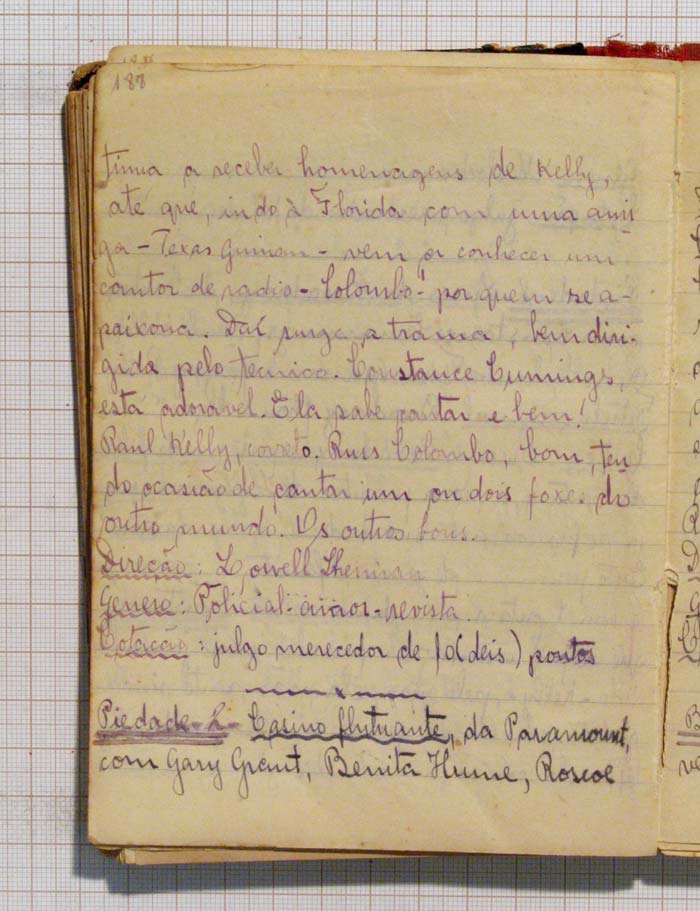 188
tinua a receber homenagens de Kelly,
até que, indo à Florida com uma ami-
ga - Texas Guinan - vem a conhecer um
cantor de radio - Colombo - por quem se a-
paixona. Daí surge a trama, bem diri-
gida pelo tecnico. Constance Cummings,
está adoravel. Ela sabe cantar e bem!
Paul Kelly, correto. Russ Colombo, bom, ten-
do ocasião de cantar um ou dois foxes do
outro mundo. Os outros bons.
Direcção: Lowell Sherman
Genero: Policial - - revista.
Cotacção: julgo merecedor de 10 (deis) pontos
x
Piedade - 2 - Casino flutuante, da Paramount,
com Gary Grant, Benita Hume, Roscoe